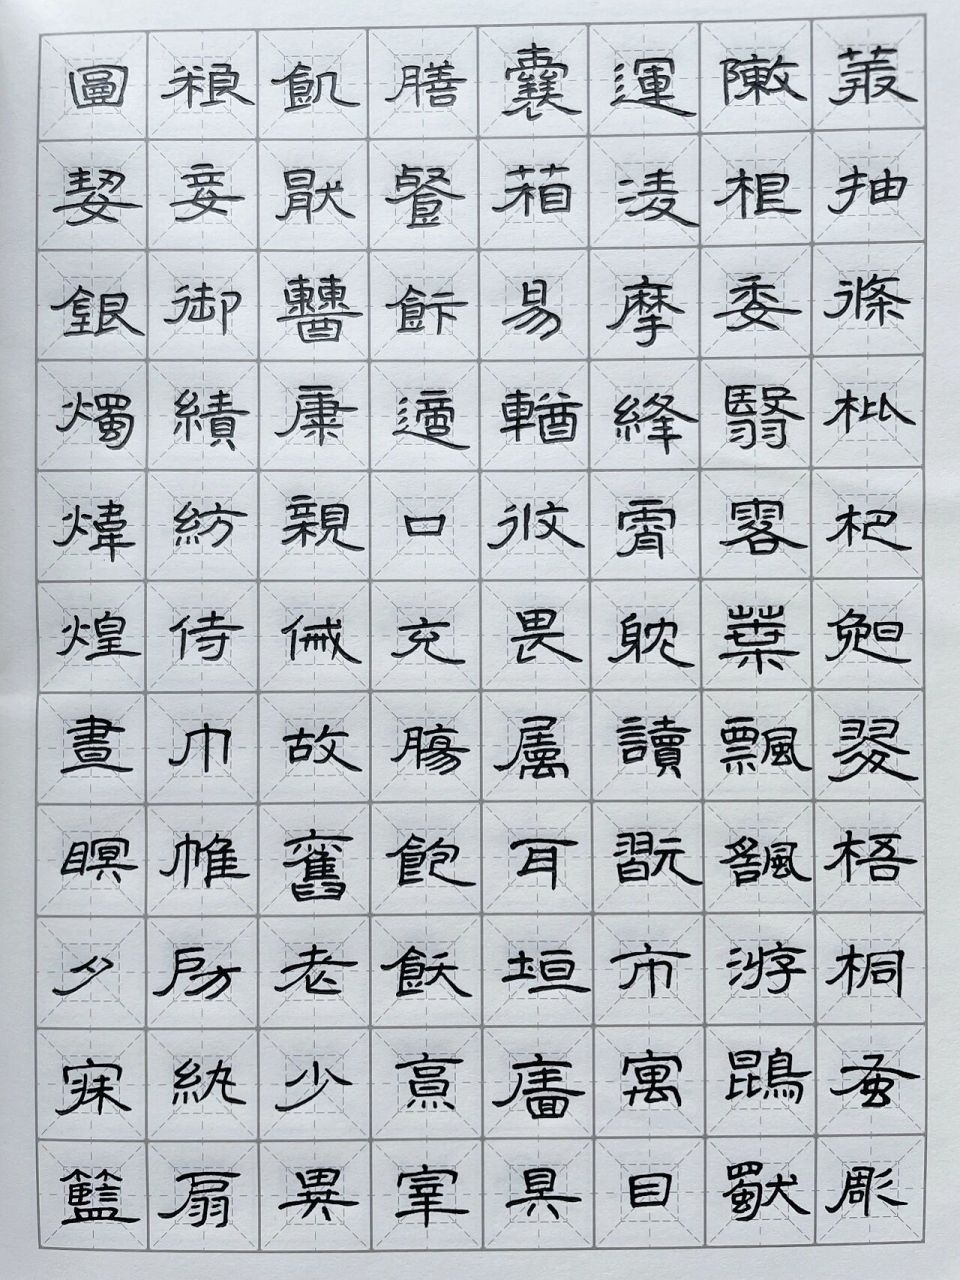 莽抽條枇杷晚翠梧桐蚤彫
陳根委翳落葉飄颻游鵾獨
運凌摩絳霄耽讀翫市寓目
囊箱易輶攸畏属耳垣牆具
膳餐飯適口充腸飽飫烹宰
飢厭糟糠親戚故舊老少異
糧妾御績紡侍巾帷房紈扇
圓潔銀燭煒煌晝瞑夕寐籃